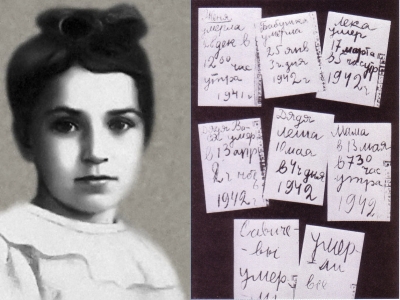 Женя
умерла
28 дек в
12 00 час
утра
1941 г
Бабушка
умерла
25 янв
3 ч дня
1942 г
Лека
умер
17 марта
в 5 час утр
1942 г
Дядя Ва-
ся умер
в 13 апр
2 ч ноч
1942 г
Дядя
Леша
10 мая
в 4 ч дня
1942
Мама
в 13 мая
в 7 30
час
утра
1942
Савиче-
-вы
умер-
ли
умер-
ли
все